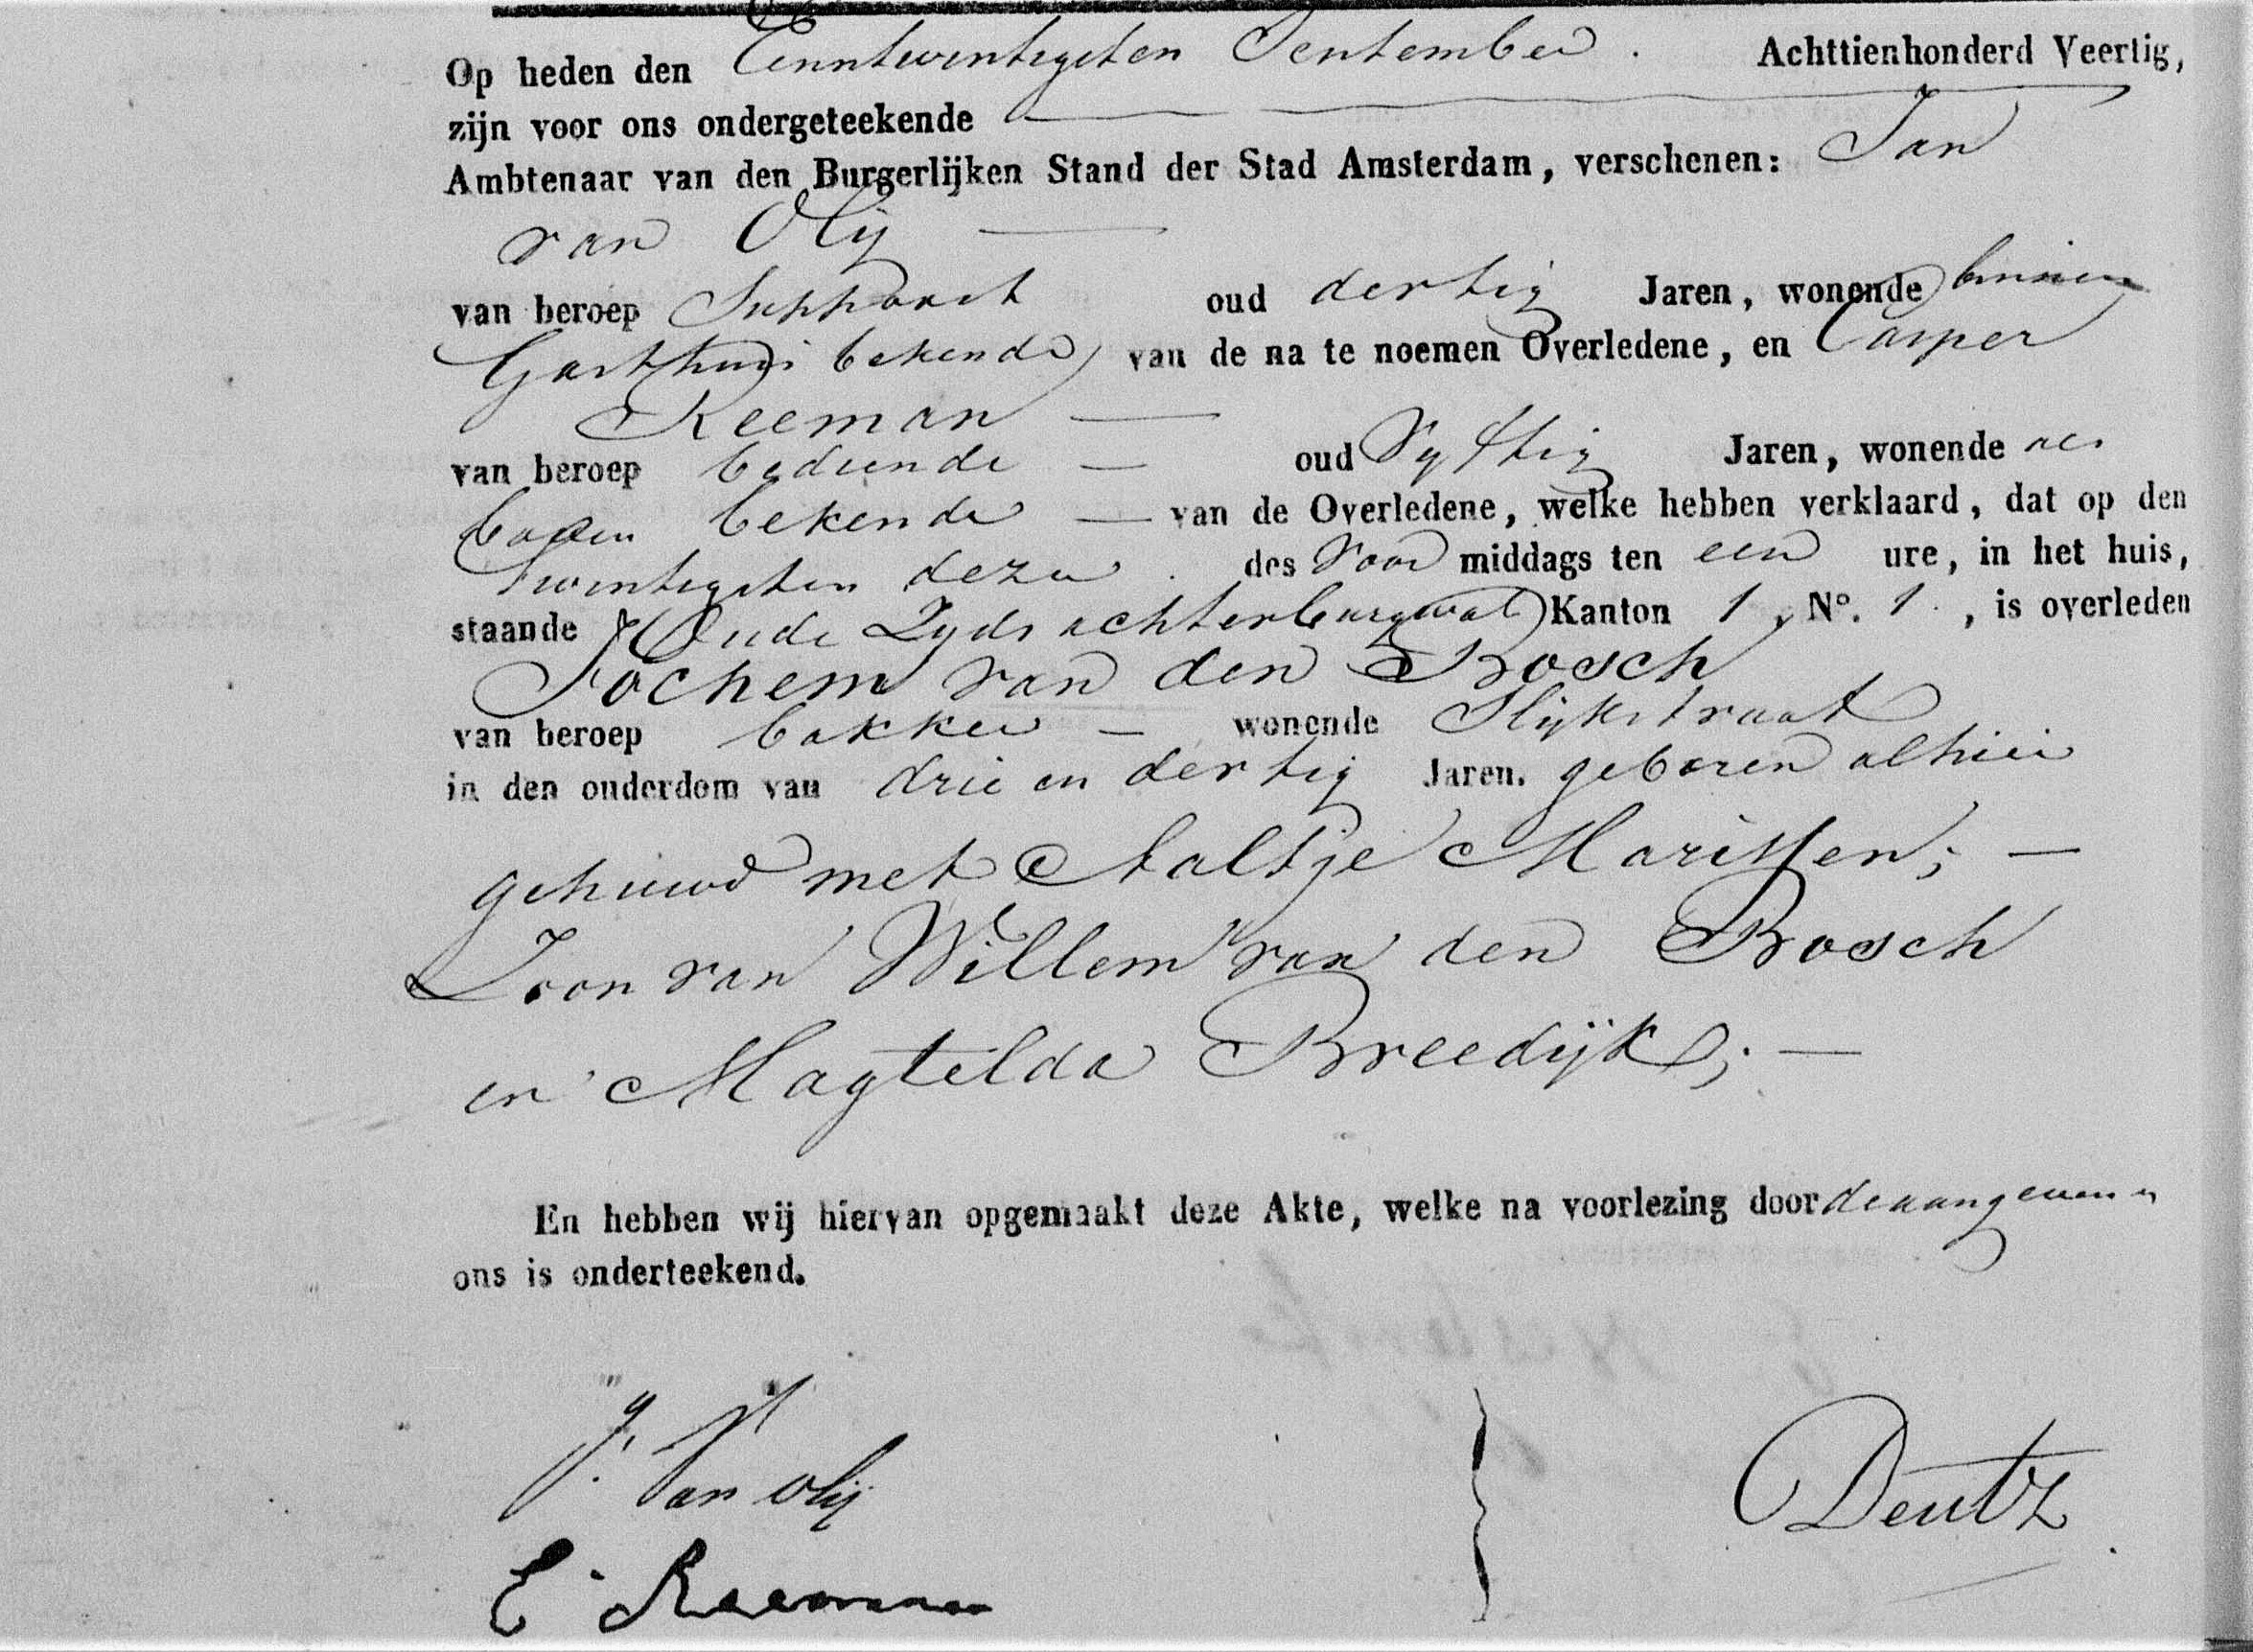 Op heden den Eenntwintigsten September. Achttienhonderd Veertig,
zijn voor ons ondergeteekende
Ambtenaar van den Burgerlijken Stand der Stad Amsterdam, verschenen: Jan
van Olij
van beroep Suppoost oud dertig Jaren, wonende binnen
Gasthuis bekende van de na te noemen Overledene, en Casper
Reeman
van beroep bediende oud Vyftig Jaren, wonende als
boven bekende van de Overledene, welke hebben verklaard, dat op den
Twintigsten dezer. des Voor middags ten een ure, in het huis,
staande Oude Zyds achterburgwal Kanton 1, No. 1, is overleden
Jochem van den Bosch
van beroep bakker wonende Slijkstraat
in den ouderdom van drie en dertig Jaren. geboren alhier
gehuwd met Aaltje Marissen; —
Zoon van Willem van den Bosch
en Magtelda Breedijk; —
En hebben wij hiervan opgemaakt deze Akte, welke na voorlezing door de aangevers en
ons is onderteekend.
J. Van Olij
Deutz
C. Reeman